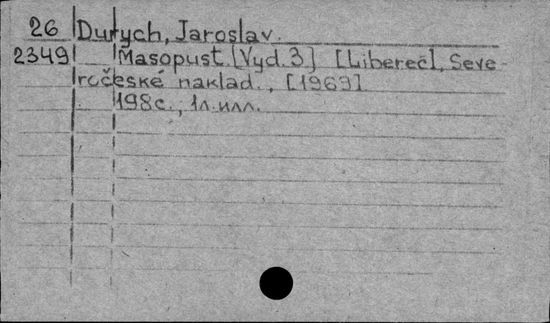 26 Durych, Jaroslav.
2349 Masopust. [Vyd. 3] [Liberec], Seve-
ročeské naklad., [1969]
198 с., 1 л. илл.